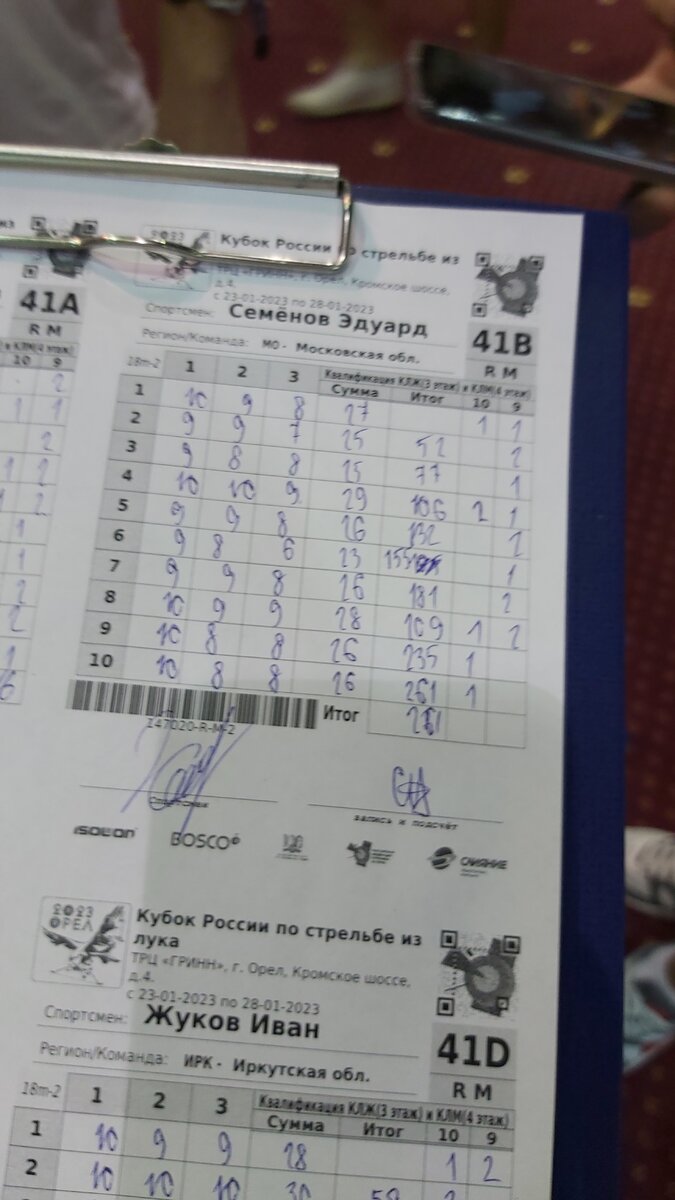 41A
R M
10 9
2023
Кубок России по стрельбе из
ТРЦ «ГРИНН», г. Орел, Кромское шоссе,
д.4.
с 23-01-2023 по 28-01-2023
Спортсмен: Семёнов Эдуард
41B
R M
Регион/Команда: МО - Московская обл.
18m-2 1 2 3 Квалификация КЛЖ(3 этаж) и КЛМ(4 этаж)
Сумма Итог 10 9
1 10 9 8 27 1 1
2 9 9 7 25 52 2
3 9 8 8 25 77 1
4 10 10 9 29 106 2 1
5 9 9 8 26 132 2
6 9 8 6 23 155 1
7 9 9 8 26 181 2
8 10 9 9 28 109 1 2
9 10 8 8 26 235 1
10 10 8 8 26 261 1
Итог 261
147020-R-M-2
Спортсмен
запись и подсчёт
isolon
BOSCO
СЛИЯНИЕ
2023
ОРЕЛ
Кубок России по стрельбе из
лука
ТРЦ «ГРИНН», г. Орел, Кромское шоссе,
д.4.
с 23-01-2023 по 28-01-2023
Спортсмен: Жуков Иван
41D
R M
Регион/Команда: ИРК - Иркутская обл.
18m-2 1 2 3 Квалификация КЛЖ(3 этаж) и КЛМ(4 этаж)
Сумма Итог 10 9
1 10 9 9 28 1 2
2 10 10 10 30 58